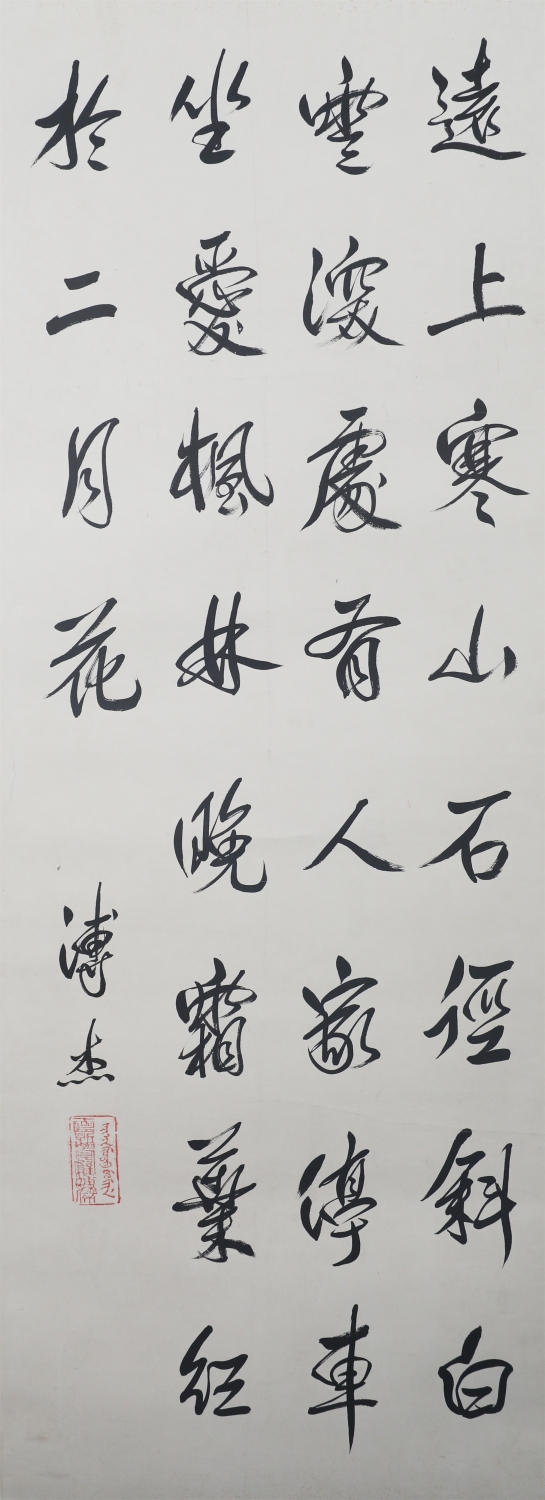 遠上寒山石徑斜白
雲深處有人家停車
坐愛楓林晚霜葉紅
於二月花
溥杰